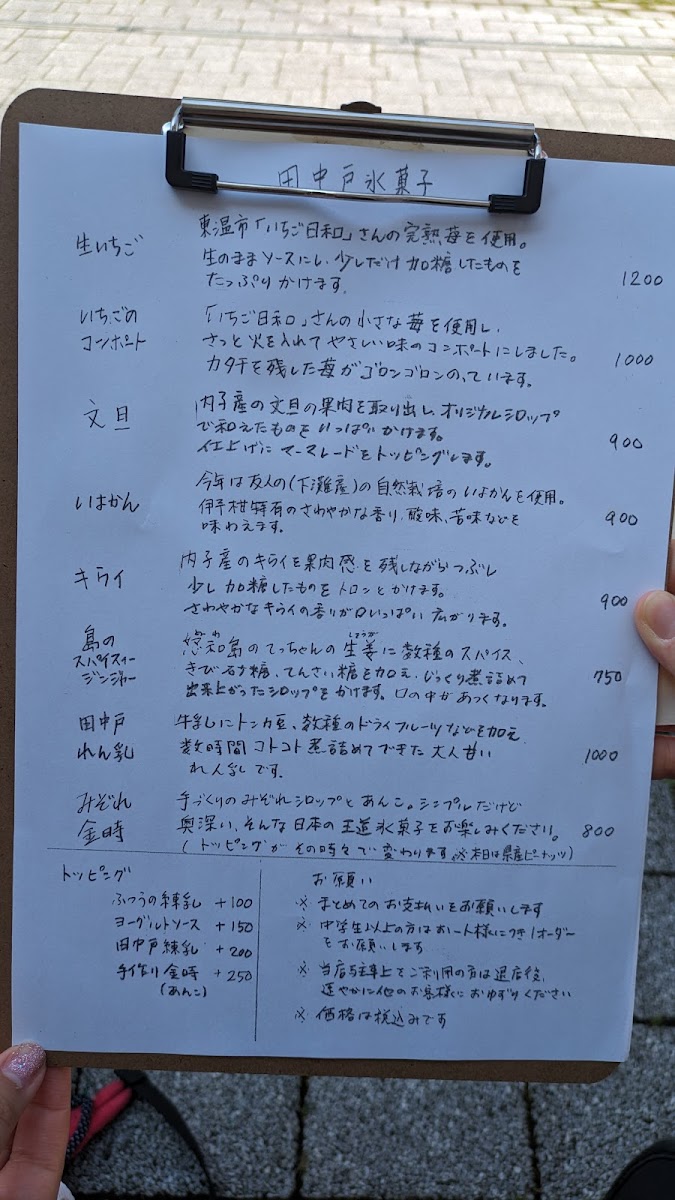 田中戸氷菓子
生いちご
東温市「いちご日和」さんの完熟苺を使用。
生のままソースにし、少しだけ加糖したものを
たっぷりかけます。
1200
いちごの
コンポート
「いちご日和」さんの小さな苺を使用し、
さっと火を入れてやさしい味のコンポートにしました。
カタチを残した苺がゴロンゴロンのっています。
1000
文旦
内子産の文旦の果肉を取り出し、オリジナルシロップ
で和えたものをいっぱいかけます。
仕上げにマーマレードをトッピングします。
900
いよかん
今年は友人の(下灘産)の自然栽培のいよかんを使用。
伊予柑特有のさわやかな香り、酸味、苦味などを
味わえます。
900
キウイ
内子産のキウイを果肉感を残しながらつぶし
少し加糖したものをトロンとかけます。
さわやかなキウイの香りが口いっぱい広がります。
900
島の
スパイスィー
ジンジャー
島のてっちゃんの生姜に数種のスパイス、
しょうが
きび砂糖、てんさい糖を加え、じっくり煮詰めて
出来上がったシロップをかけます。口の中があつくなります。
750
田中戸
れん乳
牛乳にトンカ豆、数種のドライフルーツなどを加え
数時間コトコト煮詰めてできた大人甘い
れん乳です。
1000
みぞれ
金時
手づくりのみぞれシロップとあんこ。シンプルだけど
奥深い、そんな日本の王道氷菓子をお楽しみください。
(トッピングがその時々で変わります。※本日は県産ピーナッツ)
800
トッピング
ふつうの練乳 +100
ヨーグルトソース +150
田中戸練乳 +200
手作り金時 +250
(あんこ)
お願い
※ まとめてのお支払いをお願いします
※ 中学生以上の方はお一人様につき1オーダー
をお願いします
※ 当店駐車上をご利用の方は退店後、
速やかに他のお客様におゆずりください
※ 価格は税込みです